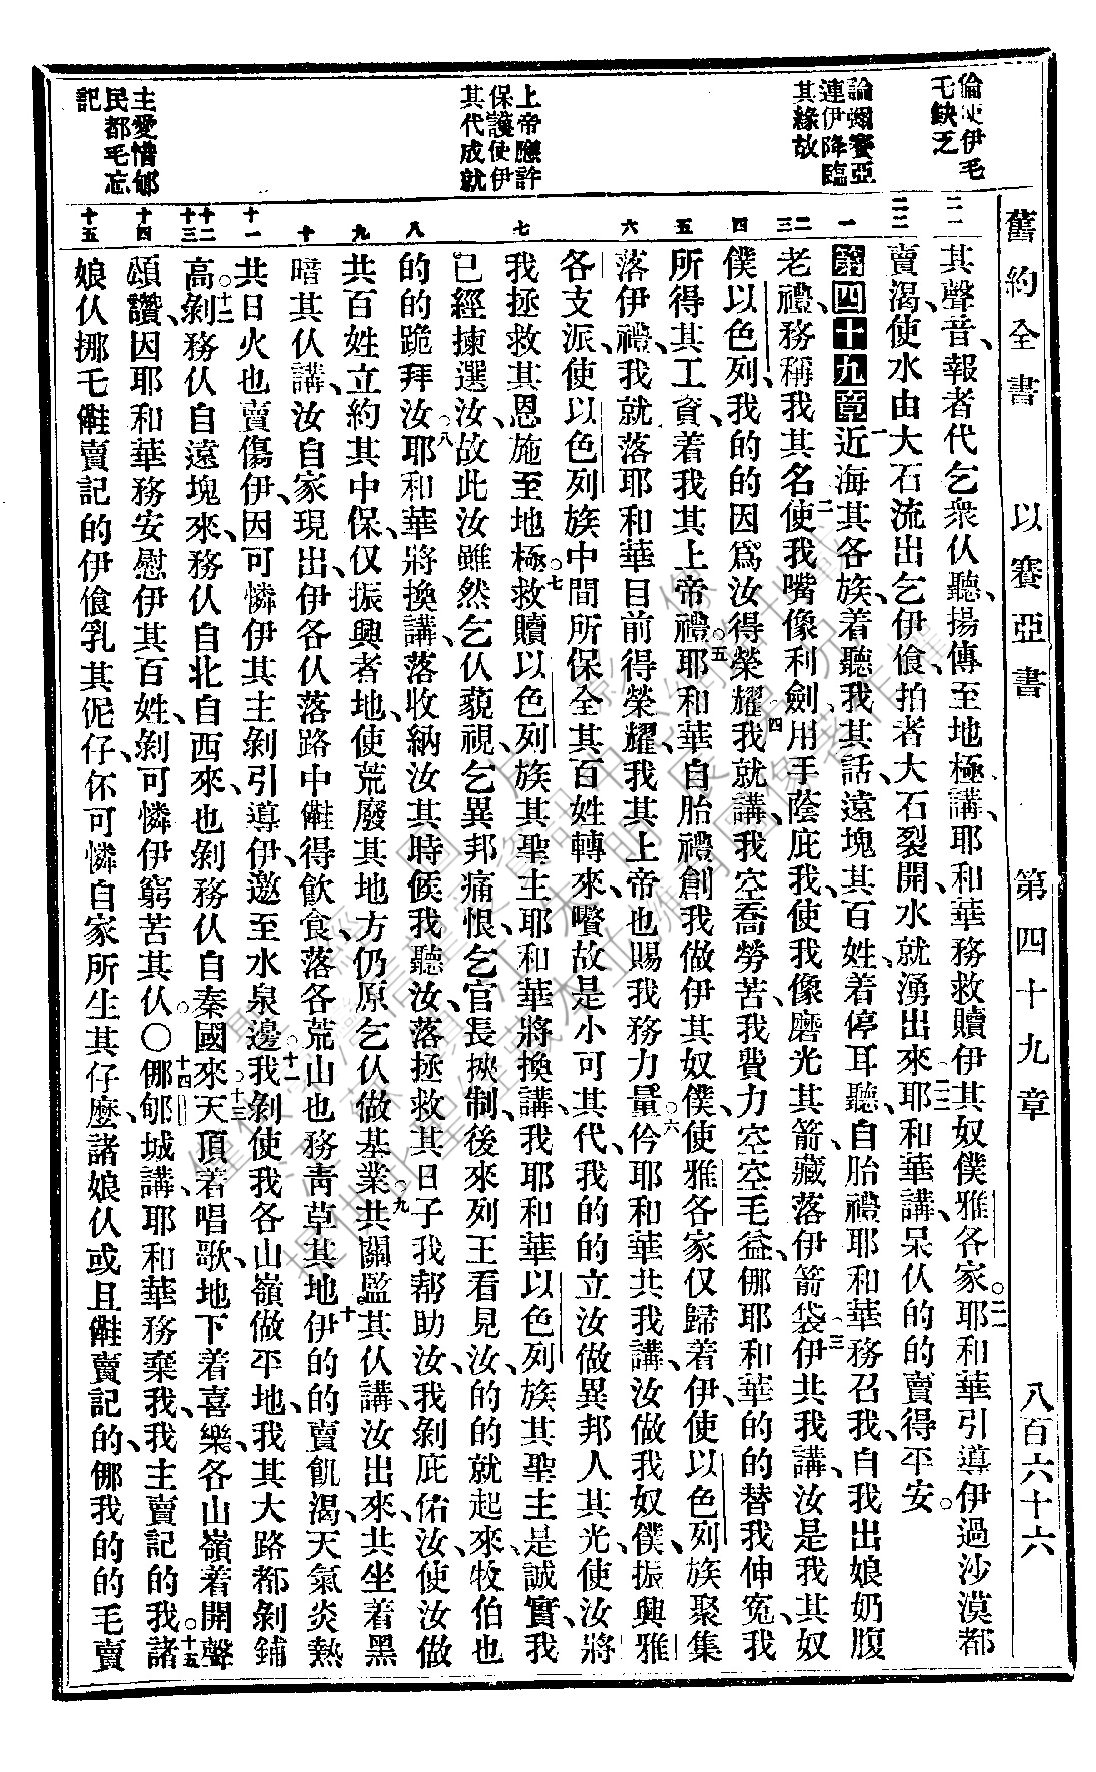 舊約全書 以賽亞書 第四十九章 八百六十六
伊毛
乇缺乏
論彌賽亞
連伊降臨
其緣故
上帝應許
保護使伊
其代成就
主愛惜郇
民都毛忘
記
二一
二二
一
二
三
四
五
六
七
八
九
十
十一
十二
十三
十四
十五
其聲音、報者代乞衆仈聽、揚傳至地極、講、耶和華務救贖伊其奴僕雅各家。二一耶和華引導伊過沙漠都
賣渴、使水由大石流出乞伊飲、拍者大石裂開、水就湧出來。二二耶和華講、呆仈的的賣得平安。
第四十九章 一近海其各族、着聽我其話、遠塊其百姓、着停耳聽、自胎禮耶和華務召我、自我出娘奶腹
老禮、務稱我其名。二使我嘴像利劍、用手蔭庇我、使我像磨光其箭、藏落伊箭袋。三伊共我講、汝是我其奴
僕以色列、我的的因爲汝得榮耀。四我就講、我空喬勞苦、我費力空空毛益、㑚耶和華的的替我伸寃、我
所得其工資、着我其上帝禮。五耶和華自胎禮創我做伊其奴僕、使雅各家仅歸着伊、使以色列族聚集
落伊禮、我就落耶和華目前得榮耀、我其上帝也賜我務力量。六仱耶和華共我講、汝做我奴僕、振興雅
各支派、使以色列族中間所保全其百姓轉來、嚽故是小可其代、我的的立汝做異邦人其光、使汝將
我拯救其恩、施至地極。七救贖以色列族其聖主耶和華將換講、我耶和華以色列族其聖主、是誠實、我
已經揀選汝、故此汝雖然乞仈藐視、乞異邦痛恨、乞官長挾制、後來列王看見汝、的的就起來、牧伯也
的的跪拜汝。八耶和華將換講、落收納汝其時候、我聽汝、落拯救其日子、我幫助汝、我剝庇佑汝、使汝做
共百姓立約其中保、仅振興者地、使荒廢其地方、仍原乞仈做基業。九共關監其仈講、汝出來、共坐着黑
暗其仈講、汝自家現出、伊各仈落路中𣍐得飲食、落各荒山也務靑草其地。十伊的的賣飢渴、天氣炎熱
共日火也賣傷伊、因可憐伊其主剝引導伊、邀至水泉邊。十一我剝使我各山嶺做平地、我其大路都剝鋪
高。十二剝務仈自遠塊來、務仈自北自西來、也剝務仈自秦國來。十三天頂着唱歌、地下着喜樂、各山嶺着開聲
頌讚、因耶和華務安慰伊其百姓、剝可憐伊窮苦其仈。〇十四㑚郇城講、耶和華務棄我、我主賣記的我。十五諸
娘仈挪乇𣍐賣記的伊飲乳其伲仔、伓可憐自家所生其仔麼、諸娘仈或且𣍐賣記的、㑚我的的毛賣